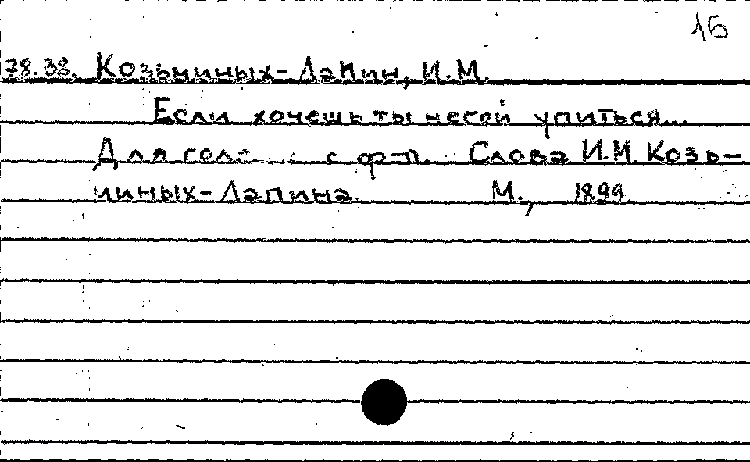 15
78.38. Козьминых-Лапин, И.М.
Если хочешь ты негой упиться...
Для гол. с ф-п. Слова И.М. Козь-
миных-Лапина. М., 1899